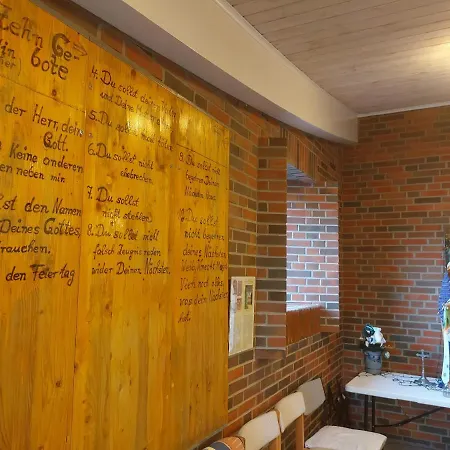 Zehn Ge-
bote
der Herr, dein
Gott.
Keine anderen
neben mir
den Namen
Deines Gottes
den Feiertag
4. Du sollst deinen Vater
und Deine
5. Du sollst nicht
6. Du sollst nicht
ehebrechen.
7. Du sollst
nicht stehlen.
8. Du sollst nicht
falsch Zeugnis reden
wider Deinen Nächsten.
9. Du sollst
nicht
begehren
Deines
Nächsten Haus.
Du sollst
nicht begehren
deines Nächsten
Weib, Knecht, Magd
Vieh noch alles,
was dein Nächster
hat.